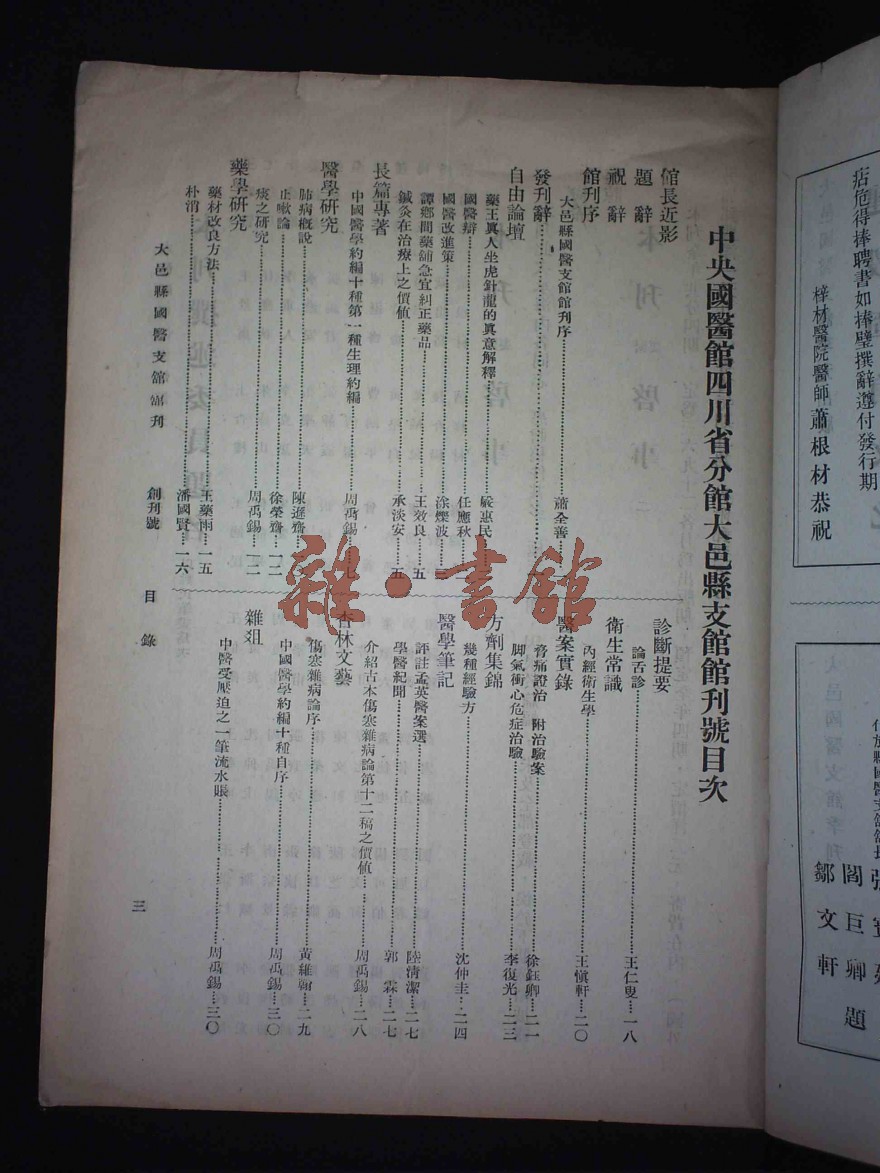 中央國醫館四川省分館大邑縣支館館刊號目次
館長近影
題辭
祝辭
館刊序
大邑縣國醫支館館刊序……蕭全善
發刊辭
自由論壇
藥王眞人坐虎針龍的眞意解釋……嚴惠民
國醫辯……任應秋
國醫改進策……波
譚鄉間藥舖急宜糾正藥品……王效良……五
鍼灸在治療上之價値……承淡安……五
長篇專著
中國醫學約編十種第一種生理約編……周禹錫
醫學研究
肺病槪說……陳遜齋
止嗽論……徐榮齋……一二
痰之研究……周禹錫……一二
藥學研究
藥材改良方法……王藥雨……一五
朴消……潘國賢……一六
診斷提要
論舌診……王仁叟……一八
衛生常識
內經衛生學……王愼軒……二〇
醫案實錄
脊痛證治 附治驗案……徐鈺卿……二一
脚氣衝心危症治驗……李復光……二三
方劑集錦
幾種經驗方……沈仲圭……二四
醫學筆記
評註孟英醫案選……陸淸潔……二七
學醫紀聞……郭霖……二七
杏林文藝
介紹古本傷寒雜病論第十二稿之價值……周禹錫……二八
傷寒雜病論序……黃維翰……二九
中國醫學約編十種自序……周禹錫……三〇
雜俎
中醫受壓迫之一筆流水賬……周禹錫……三〇
大邑縣國醫支館館刊 創刊號 目錄 三
雜·書館
痁危得捧聘書如捧璧撰辭遵付發行期
梓材醫院醫師蕭根材恭祝
縣國醫支館館長
閻巨卿題
鄒文軒